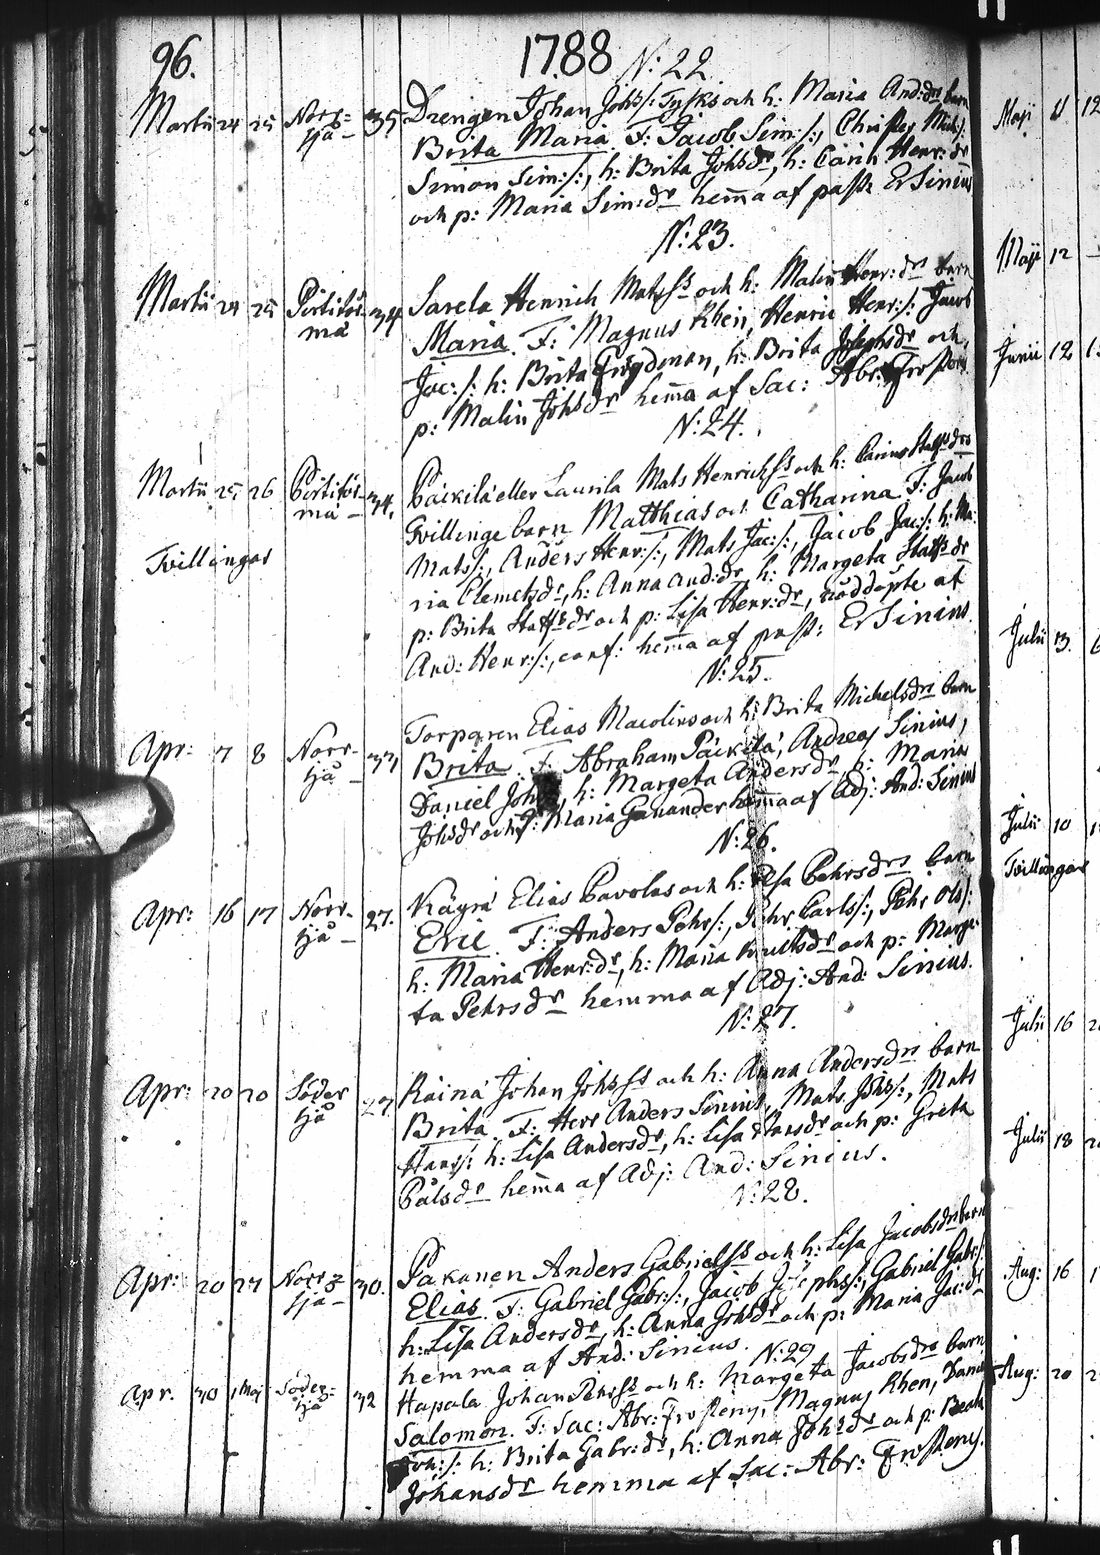 96. 1788
N: 22.
Martii 24 25 Norr= tjä 35 Drengen Johan Johs/: Tysk och h: Maria And:drs barn
Brita Maria F: Jacob Sim:/:, Mich/:
Simon Sim:/:, h: Brita Johsdr, h: Carin Henr:dr
och p: Maria Sim:dr hem̄a af past: E Sinius
N: 23.
Martii 24 25 34 Sarela Henrich Matsss och h: Malin Henr:drs barn
Maria. F: Magnus Rhen, Henric Henr:/: Jacob
Jac:/: h: Brita Frydman, h: Brita Josephsdr och
p: Malin Johsdr hem̄a af Sac: Abr: Frosterus
N: 24.
Martii 25 26 34. Päckilä eller Laurila Mats Henrichss och h: Carin Staffsdrs
Tvillingar
Tvillinge barn Matthias och Catharina F: Jacob
Mats/:, Anders Henr:/:, Mats Jac:/:, Jacob Jac:/: h: Ma-
ria Clemetsdr, h: Anna And:dr, h: Margeta Staffsdr
p: Brita Staffsdr och p: Lisa Henr:dr, nöddöpte af
And: Henr:/:, conf: hem̄a af past: E Sinius.
N: 25.
Apr: 7 8 Norr- tjä 33 Torparen Elias Macolin och h: Brita Michelsdrs barn
Brita. F: Abraham Päckilä, Andreas Sinius,
Daniel Joh, h: Margeta Andersdr h: Maria
Johsdr och p: Maria Ganander hem̄a af Adj: And: Sinius
N: 26.
Apr: 16 17 Norr- tjä 27. Kägrä Elias Pavolas och h: Elsa Pehrsdrs barn
Eric F: Anders Pehr/:, Pehr Carls/:, Pehr Ols/:
h: Maria Henr:dr, h: Maria Knutsdr och p: Marge-
ta Pehrsdr hemma af Adj: And: Sinius.
N: 27.
Apr: 20 20 Söder tjä 27 Räinä Johan Johsss och h: Anna Andersdrs barn
Brita F: Herr Anders Sinius, Mats Johs/:, Mats
Hans/: h: Lisa Andersdr, h: Lisa Hansdr och p: Greta
Pålsdr hem̄a af Adj: And: Sinius.
N: 28.
Apr: 20 27 Norr= tjä 30. Pakanen Anders Gabrielss och h: Lisa Jacobsdrs barn
Elias. F: Gabriel Gabr:/:, Jacob Josephs/:, Gabriel Gabr:/:
h: Lisa Andersdr, h: Anna Johsdr och p: Maria Jac:dr
hemma af And: Sinius.
N: 29
Apr. 30 1 Maj Söder= tjä 32 Hapala Johan Pehrss och h: Margeta Jacobsdrs barn
Salomon. F: Sac: Abr: Frosterus, Magnus Rhen, Daniel
Joh:/: h: Brita Gabr:dr, h: Anna Johsdr och p: Beata
Johansdr hemma af Sac: Abr: Frosterus.
Maji 11 12
Maji 12
Junii 12
Julii 13.
Julii 10
Tvillingar
Julii 16
Julii 18
Aug: 16
Aug: 20